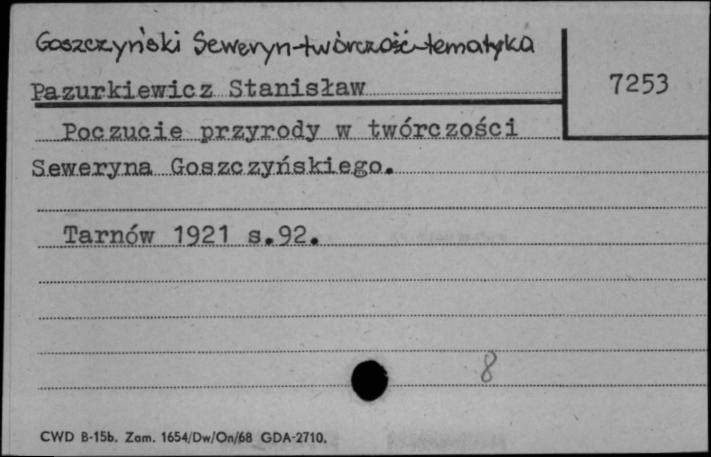 Goszczyński Seweryn-twórczość-tematyka
Pazurkiewicz Stanisław
7253
Poczucie przyrody w twórczości
Seweryna Goszczyńskiego.
Tarnów 1921 s.92.
8
CWD B-15b. Zam. 1654/Dw/On/68 GDA-2710.